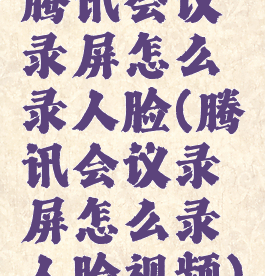 腾讯会议
录屏怎么
录人脸(腾
讯会议录
屏怎么录
人脸视频)